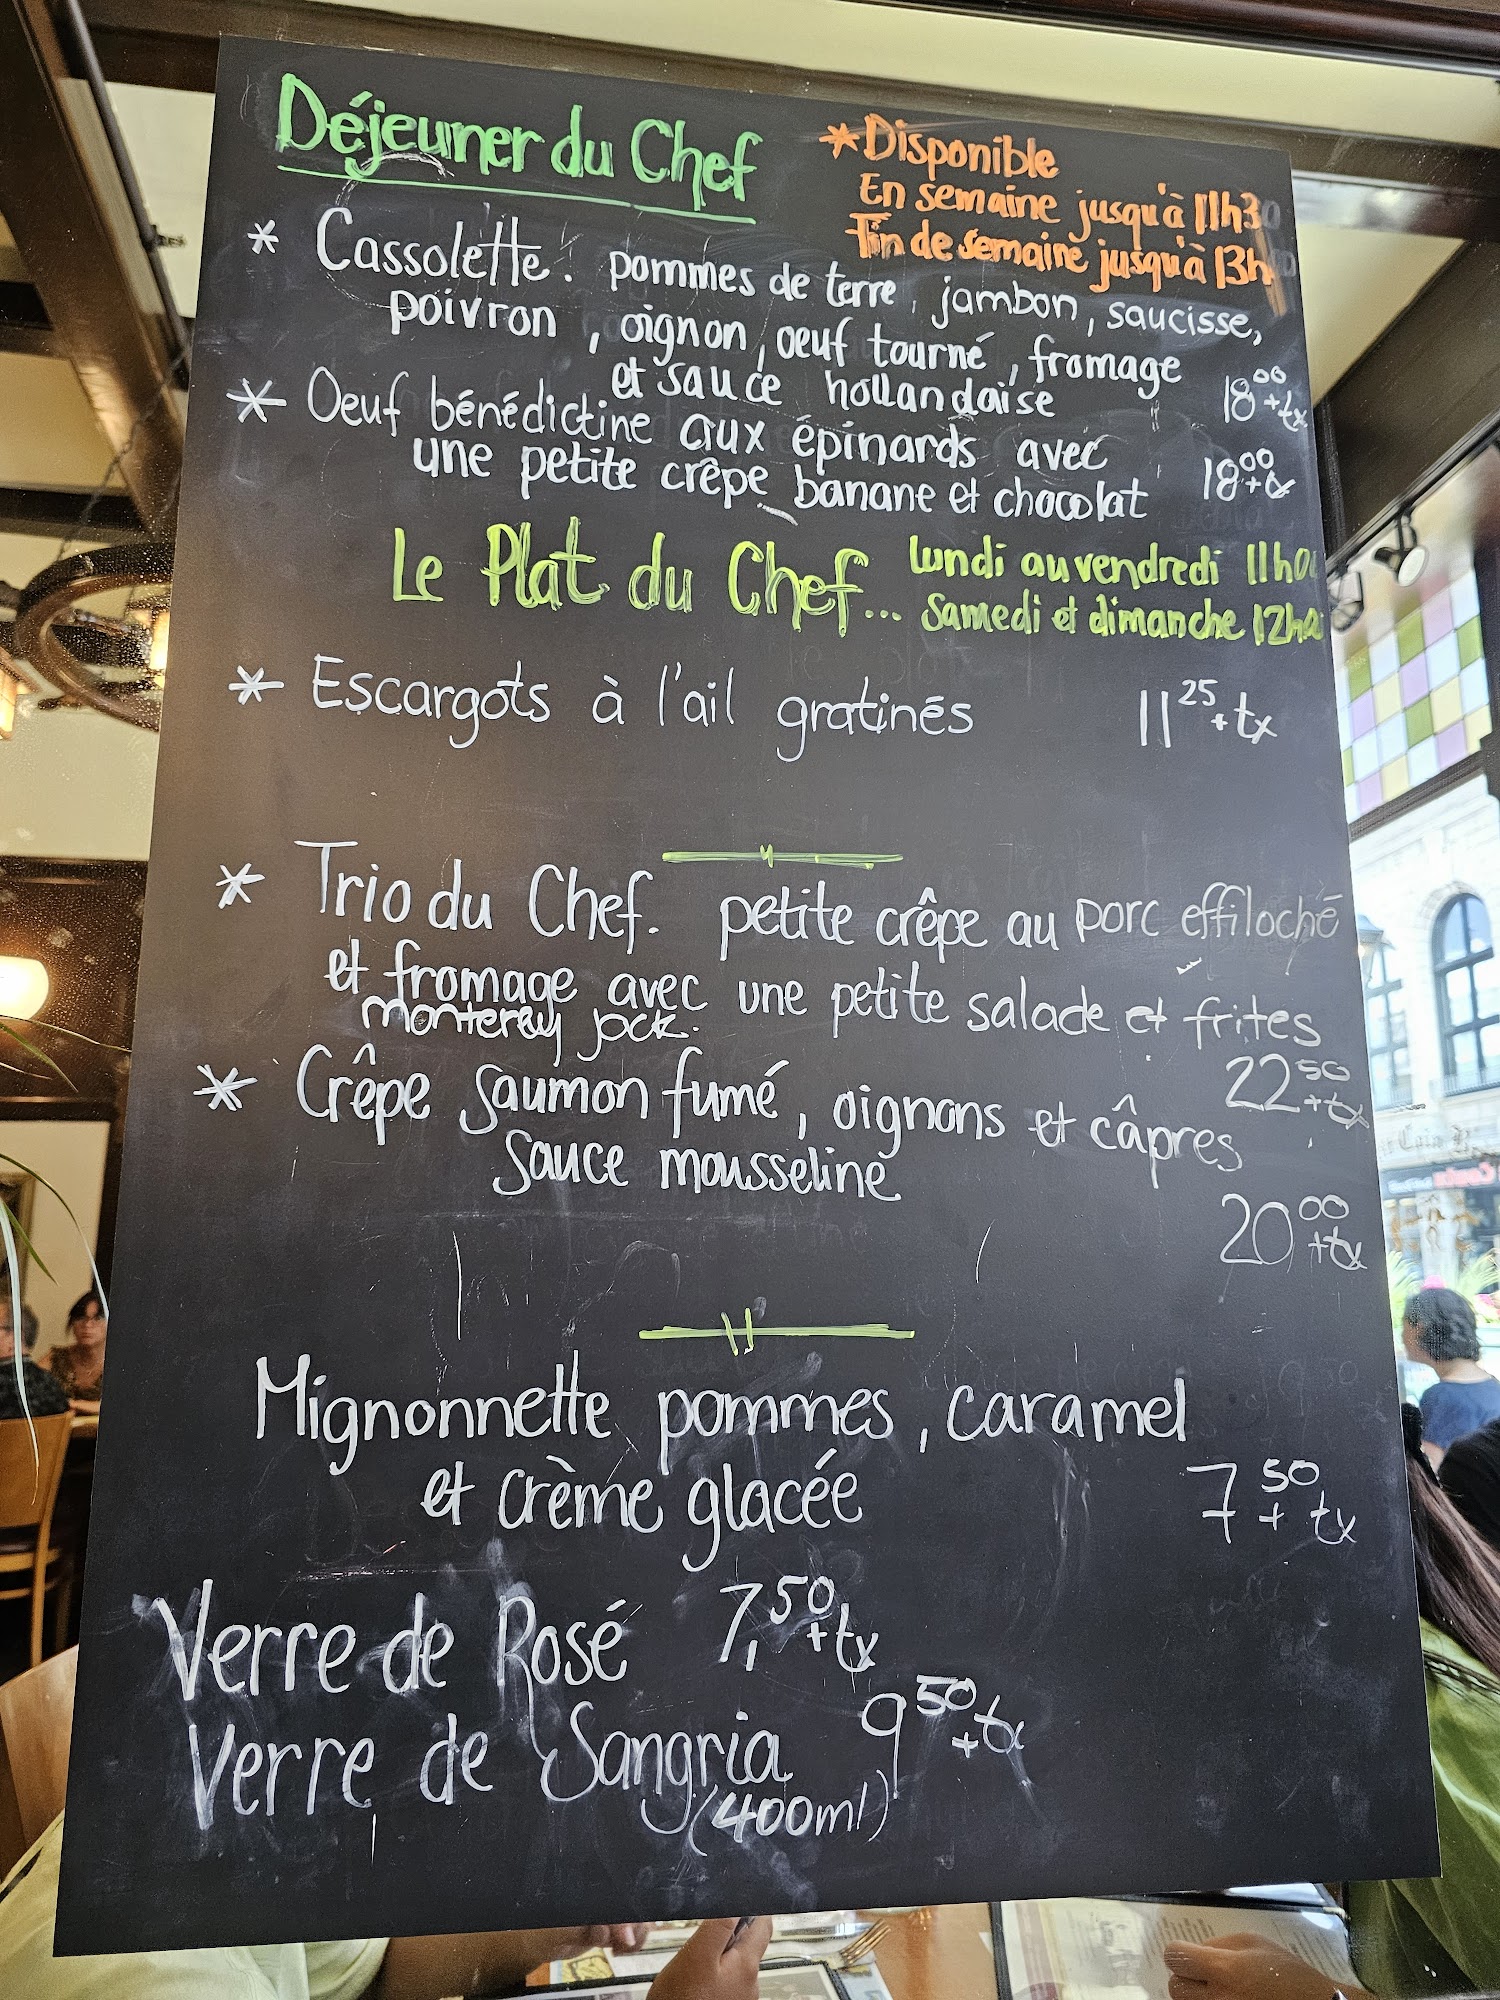 Déjeuner du Chef
*Disponible
En semaine jusqu'à 11h30
Fin de semaine jusqu'à 13h
* Cassolette. pommes de terre, jambon, saucisse,
poivron, oignon, oeuf tourné, fromage
et sauce hollandaise 18⁰⁰+tx
* Oeuf bénédictine aux épinards avec
une petite crêpe banane et chocolat 18⁰⁰+tx
Le Plat du Chef...
lundi au vendredi 11h00
Samedi et dimanche 12h00
* Escargots à l'ail gratinés 11²⁵+tx
* Trio du Chef. petite crêpe au porc effiloché
et fromage avec une petite salade et frites
monterey jack. 22⁵⁰+tx
* Crêpe saumon fumé, oignons et câpres
sauce mousseline
20⁰⁰+tx
Mignonnette pommes, caramel
et crème glacée 7⁵⁰+tx
Verre de Rosé 7,⁵⁰+tx
Verre de Sangria 9⁵⁰+tx
(400ml)